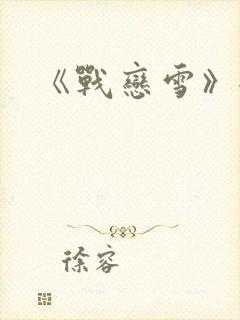 《戰戀雪》
徐容